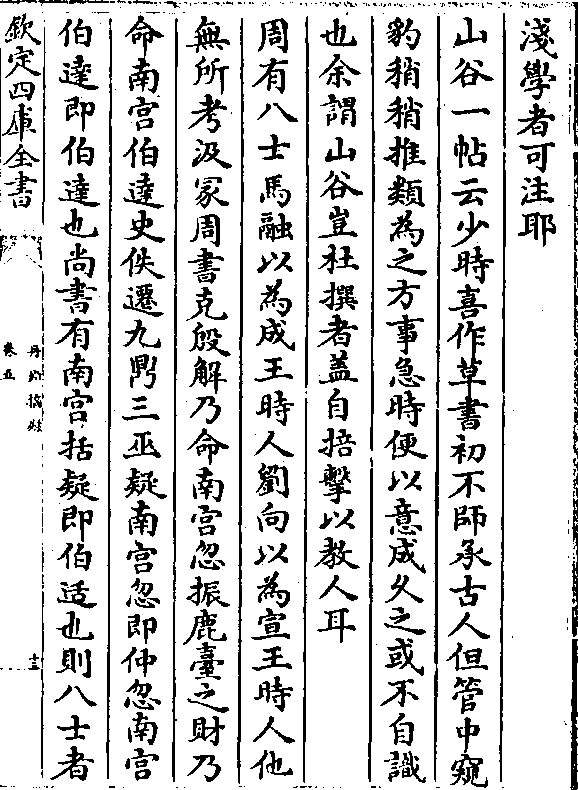 淺學者可注耶
山谷一帖云少時喜作草書初不師承古人但管中窺
豹稍稍推類為之方事急時便以意成久之或不自識
也余謂山谷豈杜撰者蓋自掊擊以教人耳
周有八士馬融以為成王時人劉向以為宣王時人他
無所考汲冢周書克殷解乃命南宫忽振鹿臺之財乃
命南宫伯達史佚遷九鼎三巫疑南宫忽即仲忽南宫
伯達即伯達也尚書有南宫括疑即伯适也則八士者
欽定四庫全書
丹鉛摘錄
卷五
十三